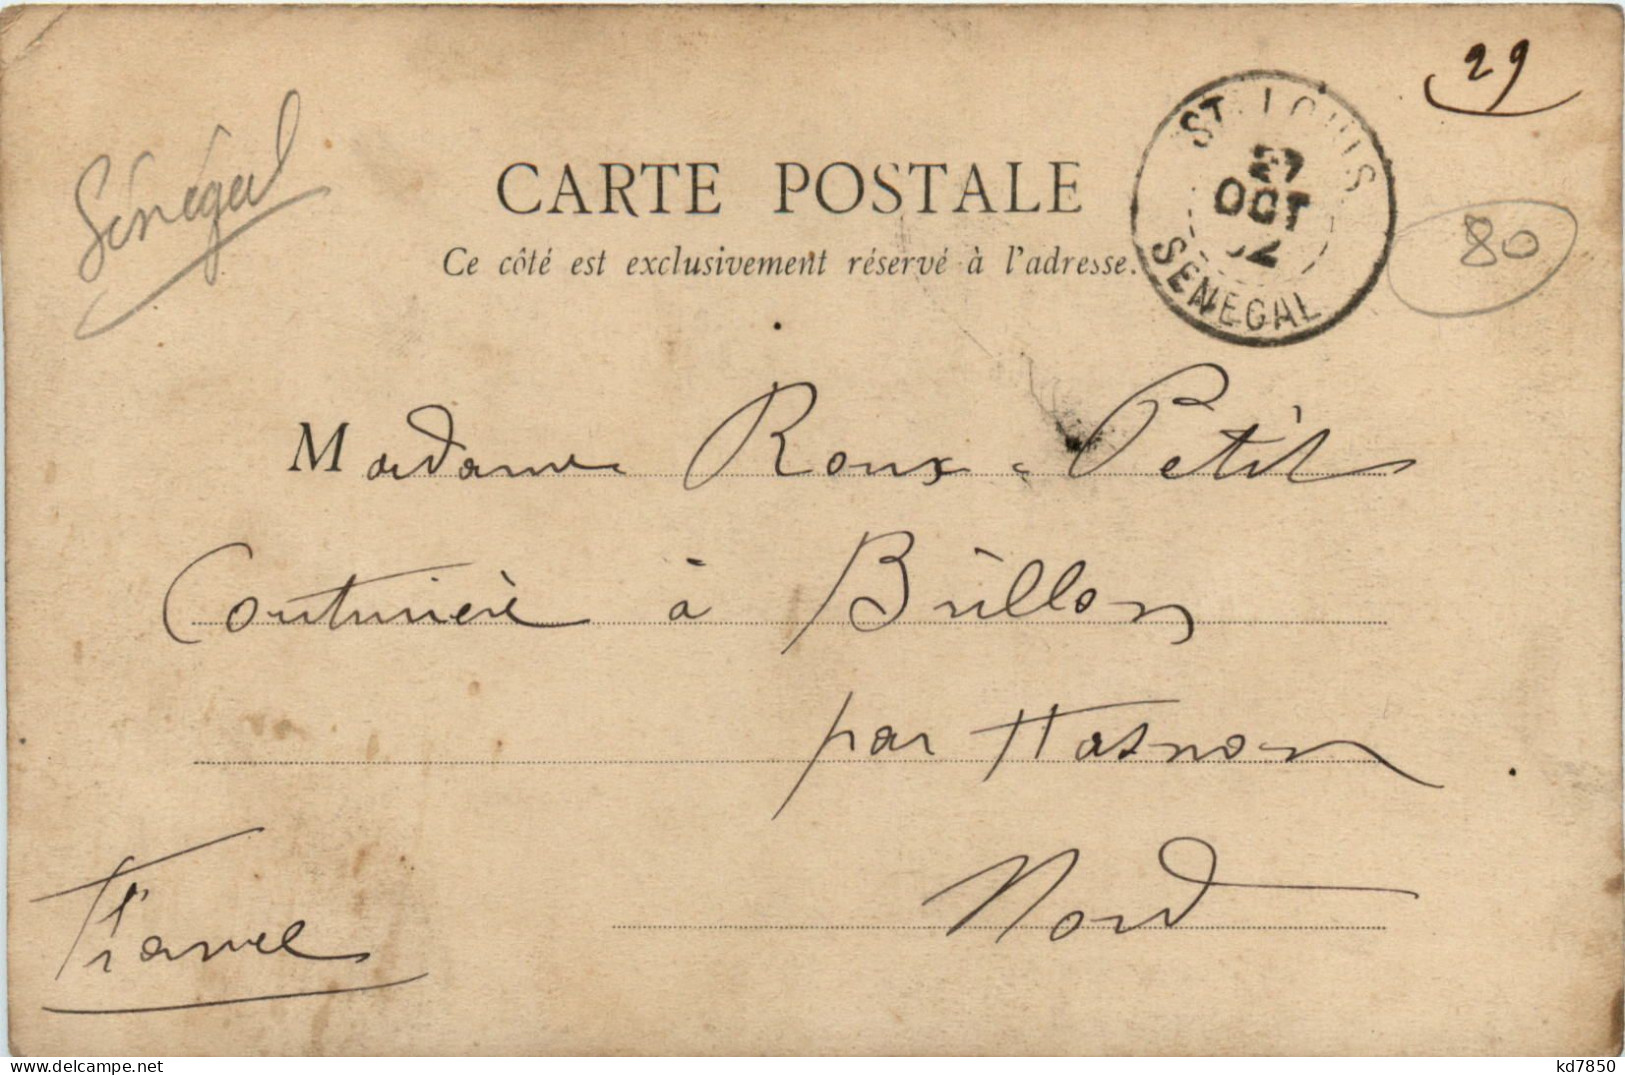 29
Sénégal
CARTE POSTALE
ST. LOUIS
27
OCT
02
SENEGAL
80
Ce côté est exclusivement réservé à l'adresse.
Madame Roux-Petit
Couturière à Brillon
par Hasnon
Nord
France
delcampe.net
kd7850